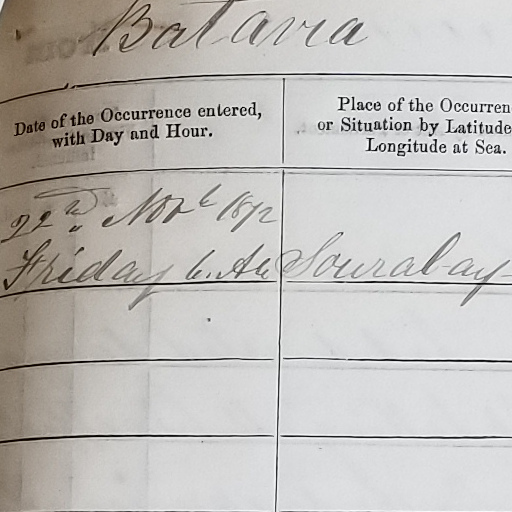 Batavia
Date of the Occurrence entered,
with Day and Hour.
Place of the Occurren
or Situation by Latitude
Longitude at Sea.
22nd Novr 1872
Friday 6. AM Sourabay